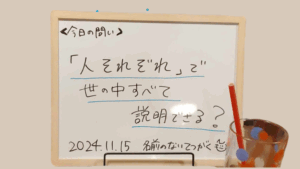 <今日の問い>
「人それぞれ」で
世の中すべて
説明できる？
2024.11.15 名前のないてつがく